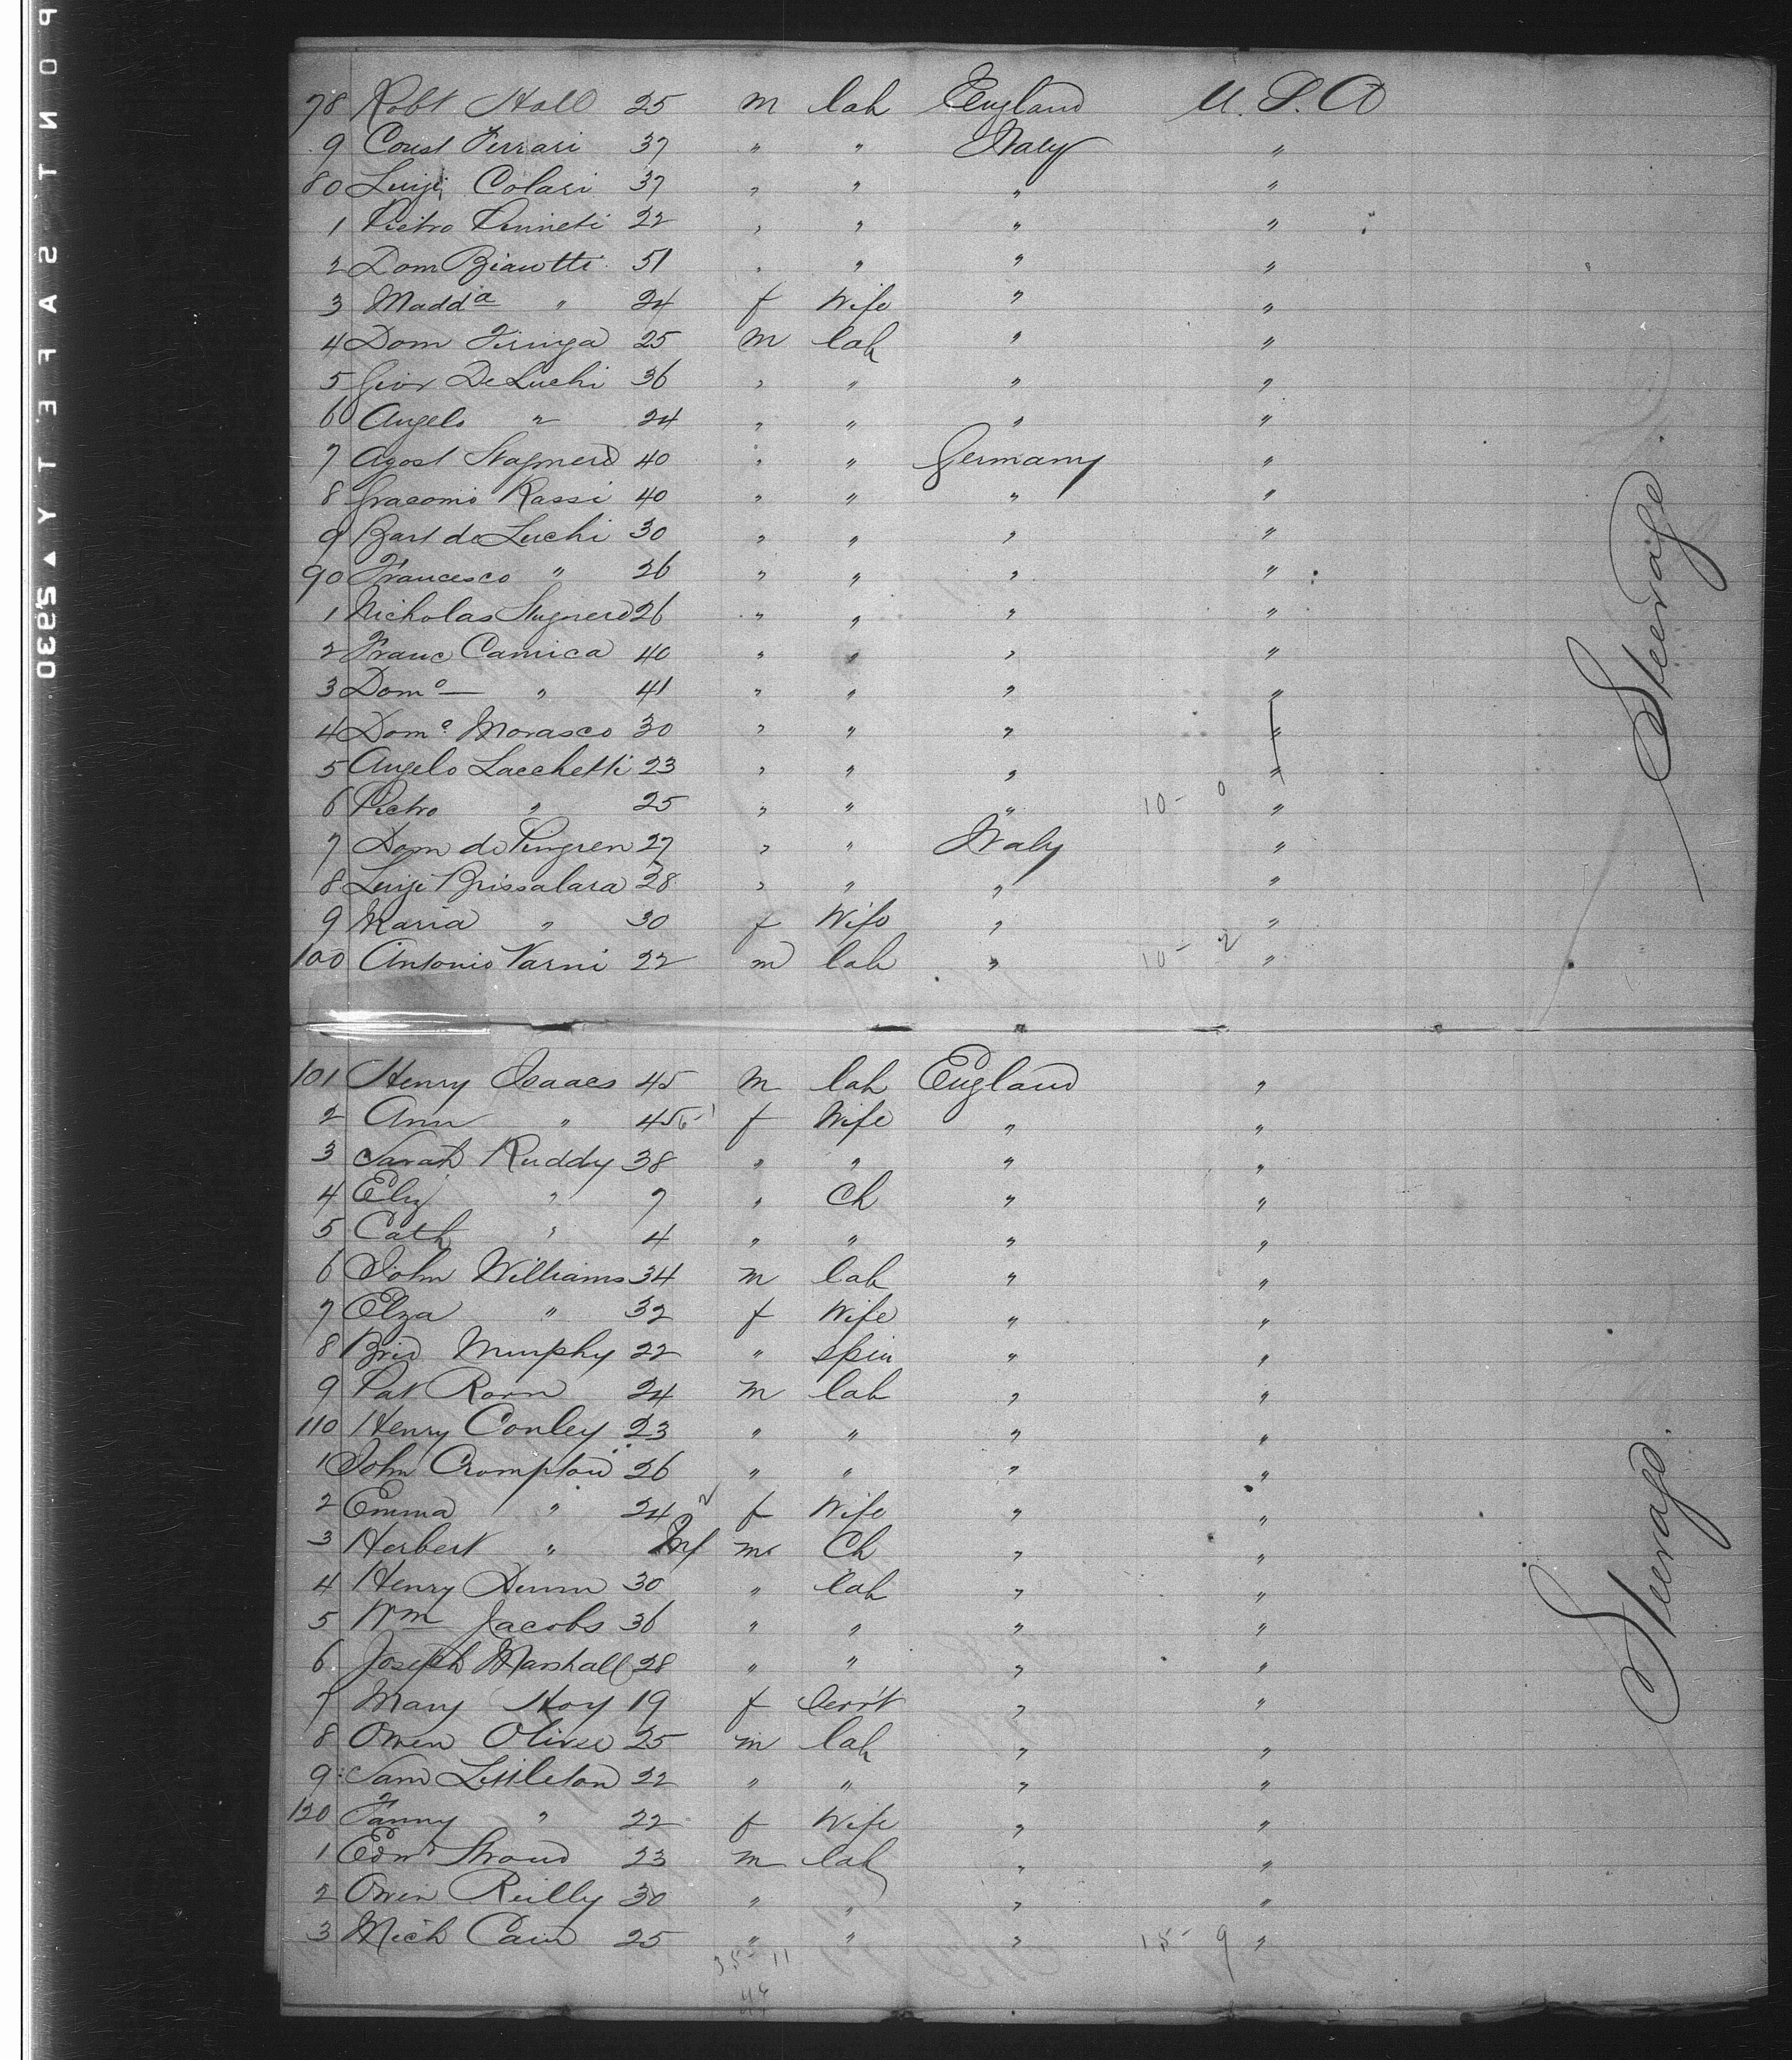 78 Robt Hall 25 m lab England U. S. A
9 Const Ferrari 37 " " Italy "
80 Luigi Colari 37 " " " "
1 Pietro Pinneti 22 " " " "
2 Dom Bianotti 51 " " " "
3 Madda " 24 f Wife " "
4 Dom Firinga 25 m lab " "
5 Giov De Luchi 36 " " " "
6 Angelo " 24 " " " "
7 Agost 40 " " Germany "
8 Giacomo Rassi 40 " " " "
9 Bart de Luchi 30 " " " "
90 Francesco " 26 " " " "
1 Nicholas 26 " " " "
2 Franc Camica 40 " " " "
3 Domo — " 41 " " " "
4 Domo Morasco 30 " " " "
5 Angelo Lacchetti 23 " " " "
6 Pietro " 25 " " " 10- 0 "
7 Dom de Pingren 27 " " Italy "
8 Luigi Brissalara 28 " " " "
9 Maria " 30 f Wife " "
100 Antonio Varni 22 m lab " 10- 2 "
Steerage
101 Henry Isaacs 45 m lab England "
2 Ann " 45 f Wife " "
3 Sarah Ruddy 38 " " " "
4 Eliz " 7 " Ch " "
5 Cath " 4 " " " "
6 John Williams 34 m lab " "
7 Elza " 32 f Wife " "
8 Brid Murphy 22 " Spin " "
9 Pat Rorn 24 m lab " "
110 Henry Conley 23 " " " "
1 John Crompton 26 " " " "
2 Emma " 24 f Wife " "
3 Herbert " Inf m Ch " "
4 Henry Dunn 30 " lab " "
5 Wm Jacobs 36 " " " "
6 Joseph Marshall 28 " " " "
7 Mary Hoy 19 f Serv't " "
8 Owen Oliver 25 m lab " "
9 Sam Littleton 22 " " " "
120 Fanny " 22 f Wife " "
1 Edmd Stroud 23 m lab " "
2 Owen Reilly 30 " " " "
3 Mich Cain 25 " " " 15- 9 "
35- 11
44
Steerage
PONT SAFETY ▲ 5230